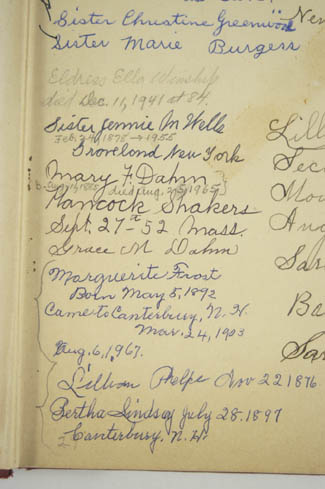 Sister Christine Greenwood
Sister Marie Burgess
Eldress Ella Winship
died Dec. 11, 1941 at 84.
Sister Jennie M Wells
Feb. 24, 1878 - 1955
Groveland New York
Mary F. Dahm
b. Aug 11, 1885 [died Aug. 25, 1965]
Hancock Shakers
Sept. 27 - 52 Mass.
Grace M Dahm
Marguerite Frost
Born May 5, 1892
Came to Canterbury, N. H.
Mar. 24, 1903
Aug. 6, 1967.
Lillian Phelps Nov 22 1876
Bertha Lindsay July 28. 1897
Canterbury, N. H.
Lill
Sec
Mou
Aug
Sar
Ba
Sar